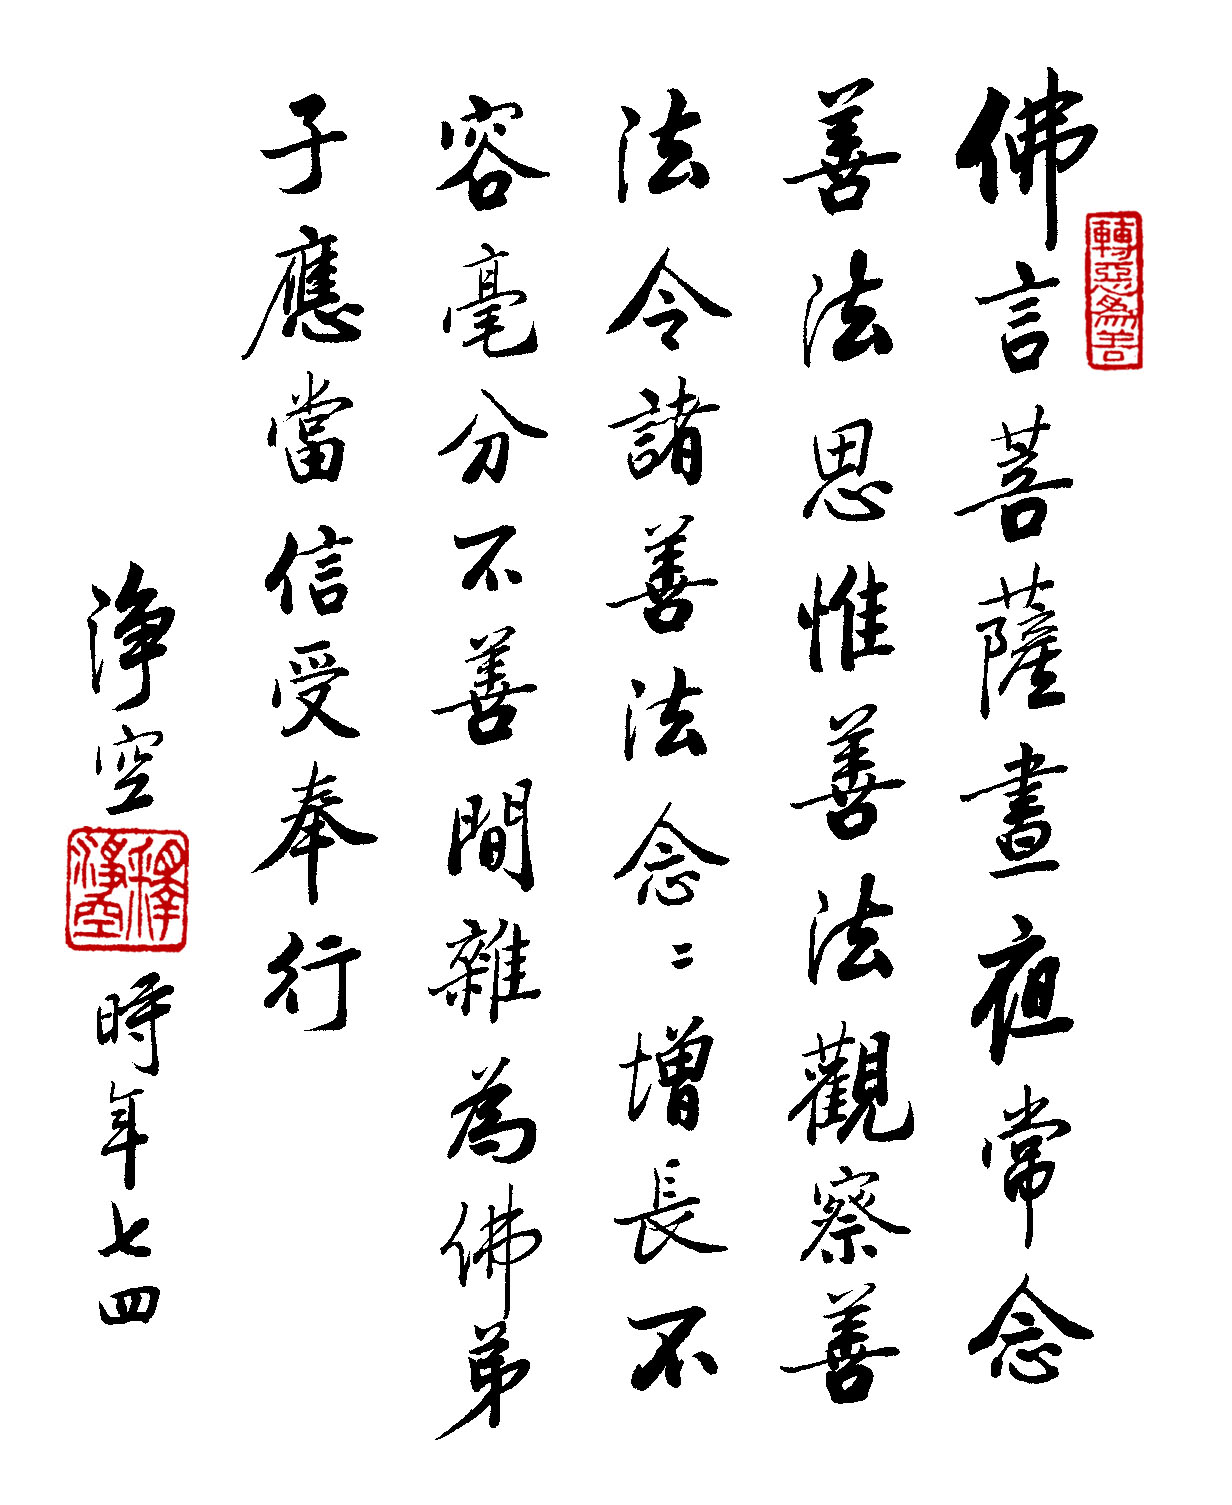 轉惡為善
佛言菩薩晝夜常念
善法思惟善法觀察善
法令諸善法念〻增長不
容毫分不善間雜為佛弟
子應當信受奉行
淨空
釋淨空
時年七四